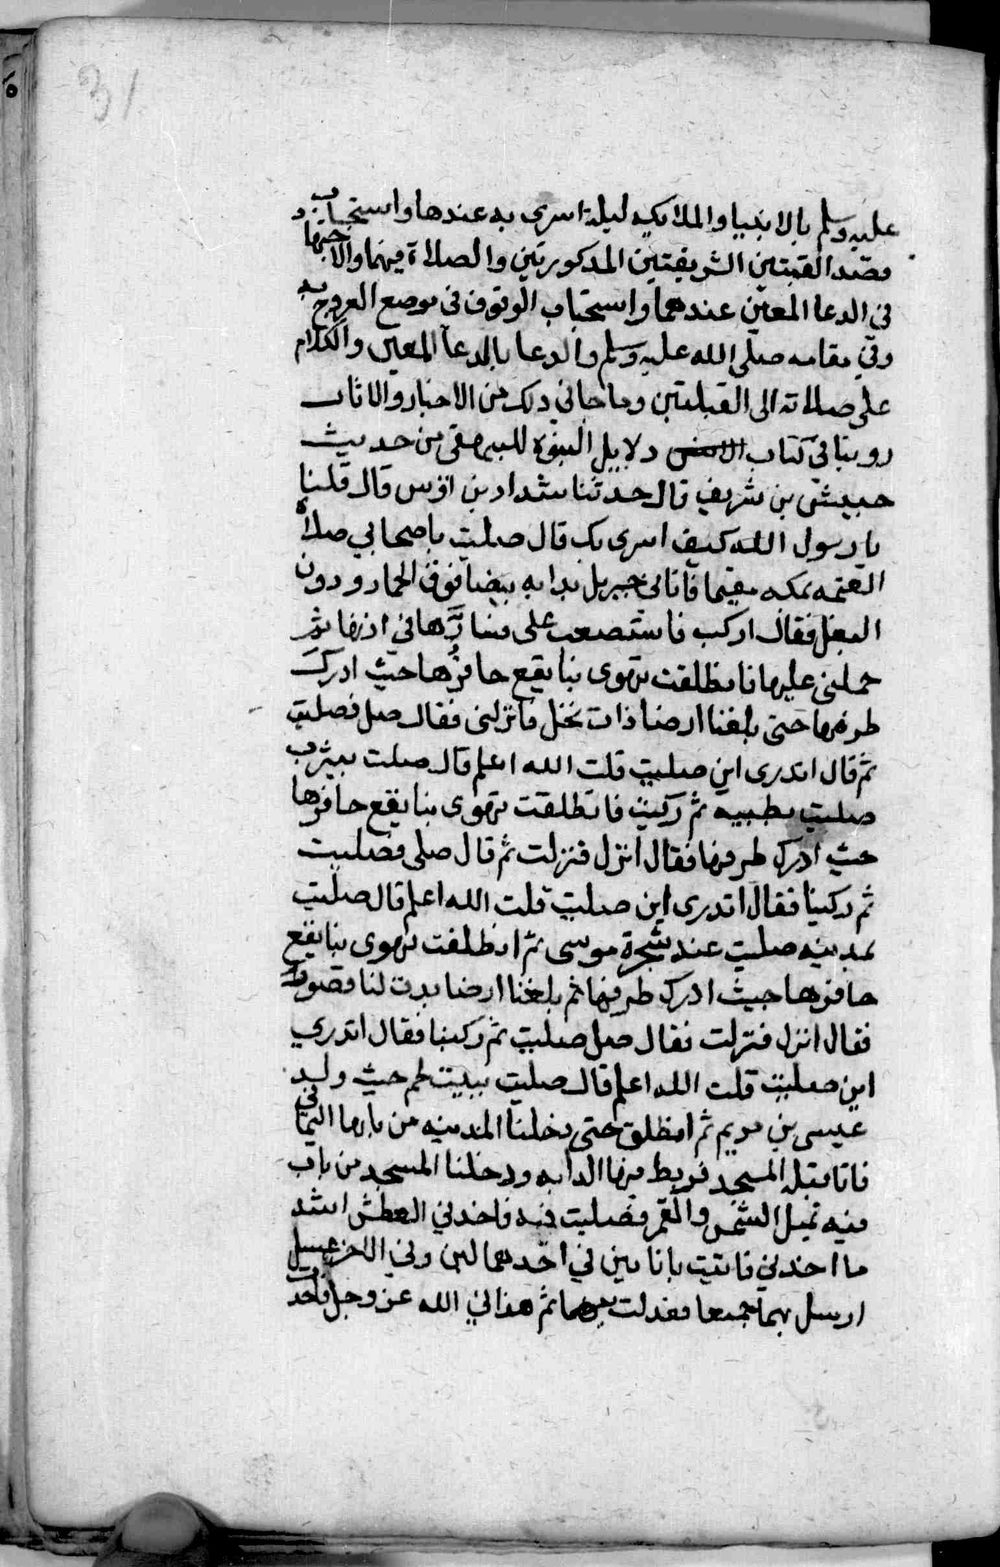 31
عليه وسلم بالانبيا والملايكه ليلة اسري به عندها واستحباب
قصد القبتين الشريفتين المدكورتين والصلاة فيهما والاجتهاد
في الدعا المعين عندهما واستحباب الوقوف في موضع العروج به
وفي مقامه صلى الله عليه وسلم والدعا بالدعا المعين والكلام
على صلاته الى القبلتين وما جا في دلك من الاخبار والاثار
روينا في كتاب دلايل النبوة للبيهقي من حديث
حبيشي بن شريف قال حدثنا شداد بن اوس قال قلنا
يا رسول الله كيف اسري بك قال صليت باصحابي صلاة
العتمه بمكه مقيما فاتاني جبريل بدابه بيضا فوق الحمار ودون
البغل فقال اركب فاستصعبت على فسارّها في اذنها ثم
حملني عليها فانطلقت تهوي بنا يقع حافرها حيث ادرك
طرفها حتى بلغنا ارضا ذات نخل فانزلني فقال صل فصليت
ثم قال اتدري اين صليت قلت الله اعلم قال صليت بيثرب
صليت بطيبه ثم ركبت فانطلقت تهوي بنا يقع حافرها
حيث ادرك طرفها فقال انزل فنزلت ثم قال صلى فصليت
ثم ركبنا فقال اتدري اين صليت قلت الله اعلم قال صليت
بمدينه صليت عند شجرة موسى ثم انطلقت تهوي بنا يقع
حافرها حيث ادرك طرفها ثم بلغنا ارضا بدت لنا قصور
فقال انزل فنزلت فقال صل صليت ثم ركبنا فقال اتدري
اين صليت قلت الله اعلم قال صليت ببيت لحم حيث ولد
عيسى بن مريم ثم انطلق حتى دخلنا المدينه من بابها اليماني
فاتا قبلة المسجد فربط فيها الدابه ودخلنا المسجد من باب
فيه تميل الشمس والقمر فصليت فيه فاخدني العطش اشد
ما اخدني فاتيت بانايين في احدهما لبن وفي الاخر عسل
ارسل بهما جميعا فعدلت بينهما ثم هداني الله عز وجل فاخدت